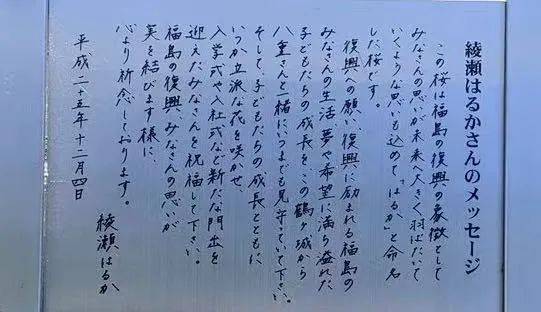 綾瀬はるかさんのメッセージ
この桜は福島の復興の象徴として
みなさんの思いが未来へ大きく羽ばたいて
いくような思いも込めて、「はるか」と命名
した桜です。
復興への願い、復興に励まれる福島の
みなさんの生活、夢や希望に満ち溢れた
子どもたちの成長をこの鶴ヶ城から
八重さんと一緒にいつまでも見守っていて下さい。
そして、子どもたちの成長とともに
いつか立派な花を咲かせ
入学式や入社式など新たな門出を
迎えたみなさんを祝福して下さい。
福島の復興、みなさんの思いが
実を結びます様に、
心より祈念しております。
平成二十五年十二月四日
綾瀬はるか